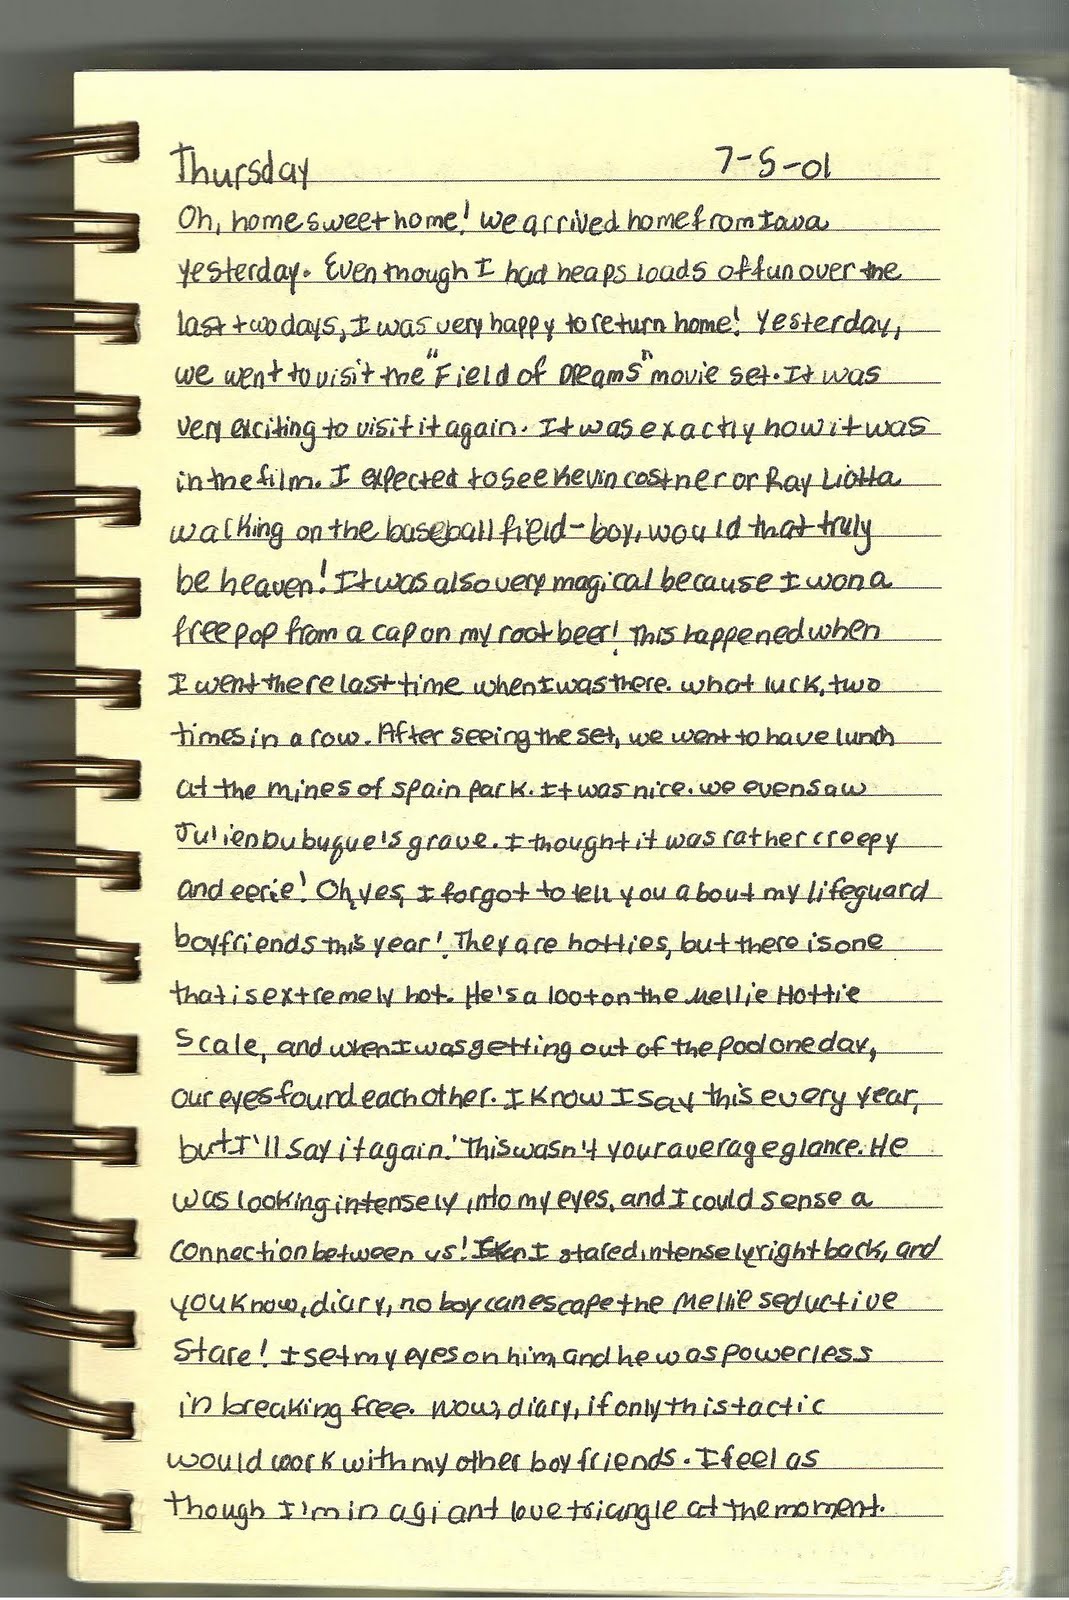 Thursday 7-5-01
Oh, home sweet home! We arrived home from Iowa
yesterday. Even though I had heaps loads of fun over the
last two days, I was very happy to return home! Yesterday,
we went to visit the "Field of Dreams" movie set. It was
very exciting to visit it again. It was exactly how it was
in the film. I expected to see Kevin costner or Ray Liotta
walking on the baseball field-boy, would that truly
be heaven! It was also very magical because I won a
free pop from a cap on my root beer! This happened when
I went there last time when I was there. what luck, two
times in a row. After seeing the set, we went to have lunch
at the mines of spain park. It was nice. we even saw
Julien Dubuque's grave. I thought it was rather creepy
and eerie! Oh, yes, I forgot to tell you about my lifeguard
boyfriends this year! They are hotties, but there is one
that is extremely hot. He's a 100 ton the Mellie Hottie
Scale, and when I was getting out of the pool one day,
our eyes found each other. I know I say this every year,
but I'll say it again! This wasn't your average glance. He
was looking intensely into my eyes, and I could sense a
connection between us! I stared intensely right back, and
you know, diary, no boy can escape the Mellie seductive
stare! I set my eyes on him, and he was powerless
in breaking free. Wow, diary, if only this tactic
would work with my other boyfriends. I feel as
though I'm in a giant love triangle at the moment.